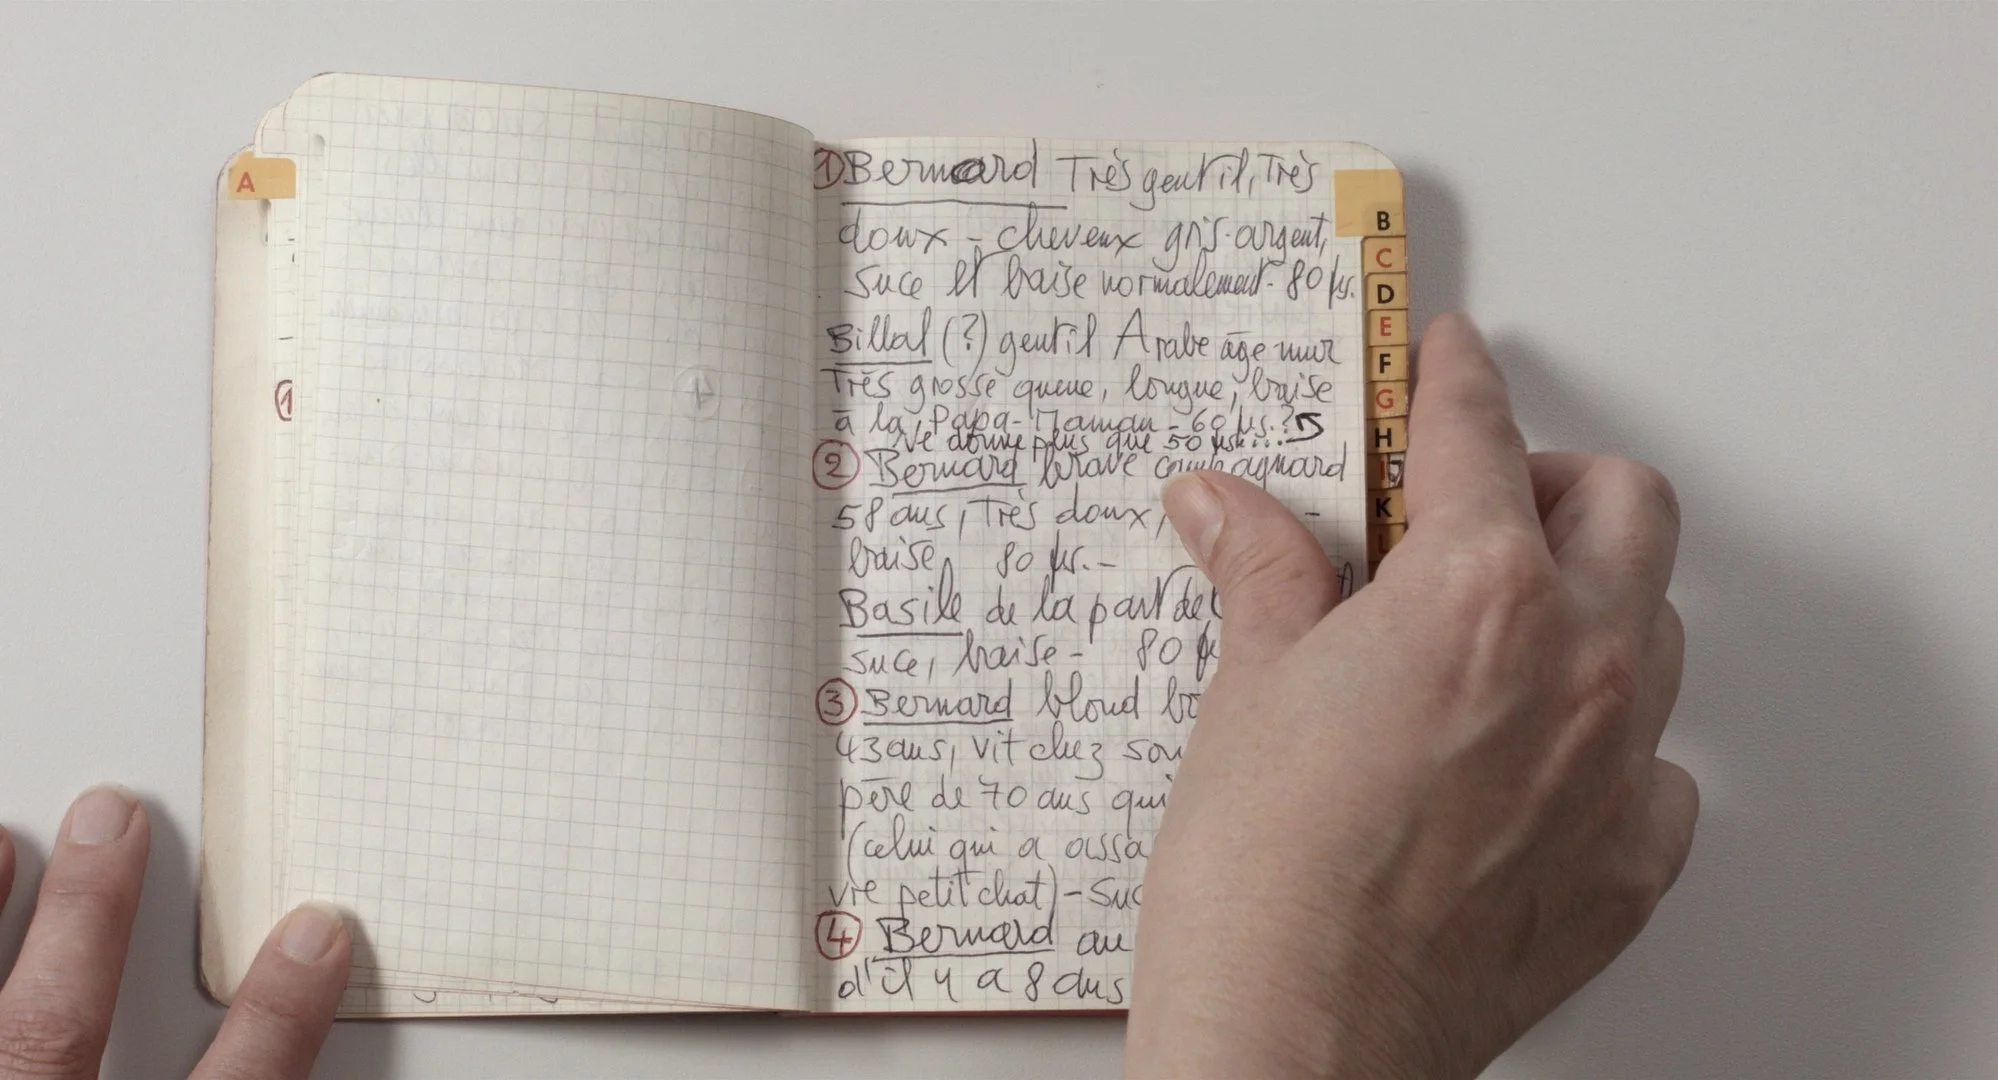 A
①
① Bernard Très gentil, Très
doux - cheveux gris-argent,
suce et baise normalement - 80 frs.
Billal (?) gentil Arabe âge mûr
Très grosse queue, longue, baise
à la Papa-Maman - 60 frs.?
Ne donne plus que 50 frs...
② Bernard brave campagnard
58 ans, Très doux,
baise, 80 frs. -
Basile de la part de
suce, baise - 80
③ Bernard blond
43 ans, vit chez son
père de 70 ans qui
(celui qui a
petit chat) - Suc
④ Bernard au
d'il y a 8 ans
B
C
D
E
F
G
H
I
K
L